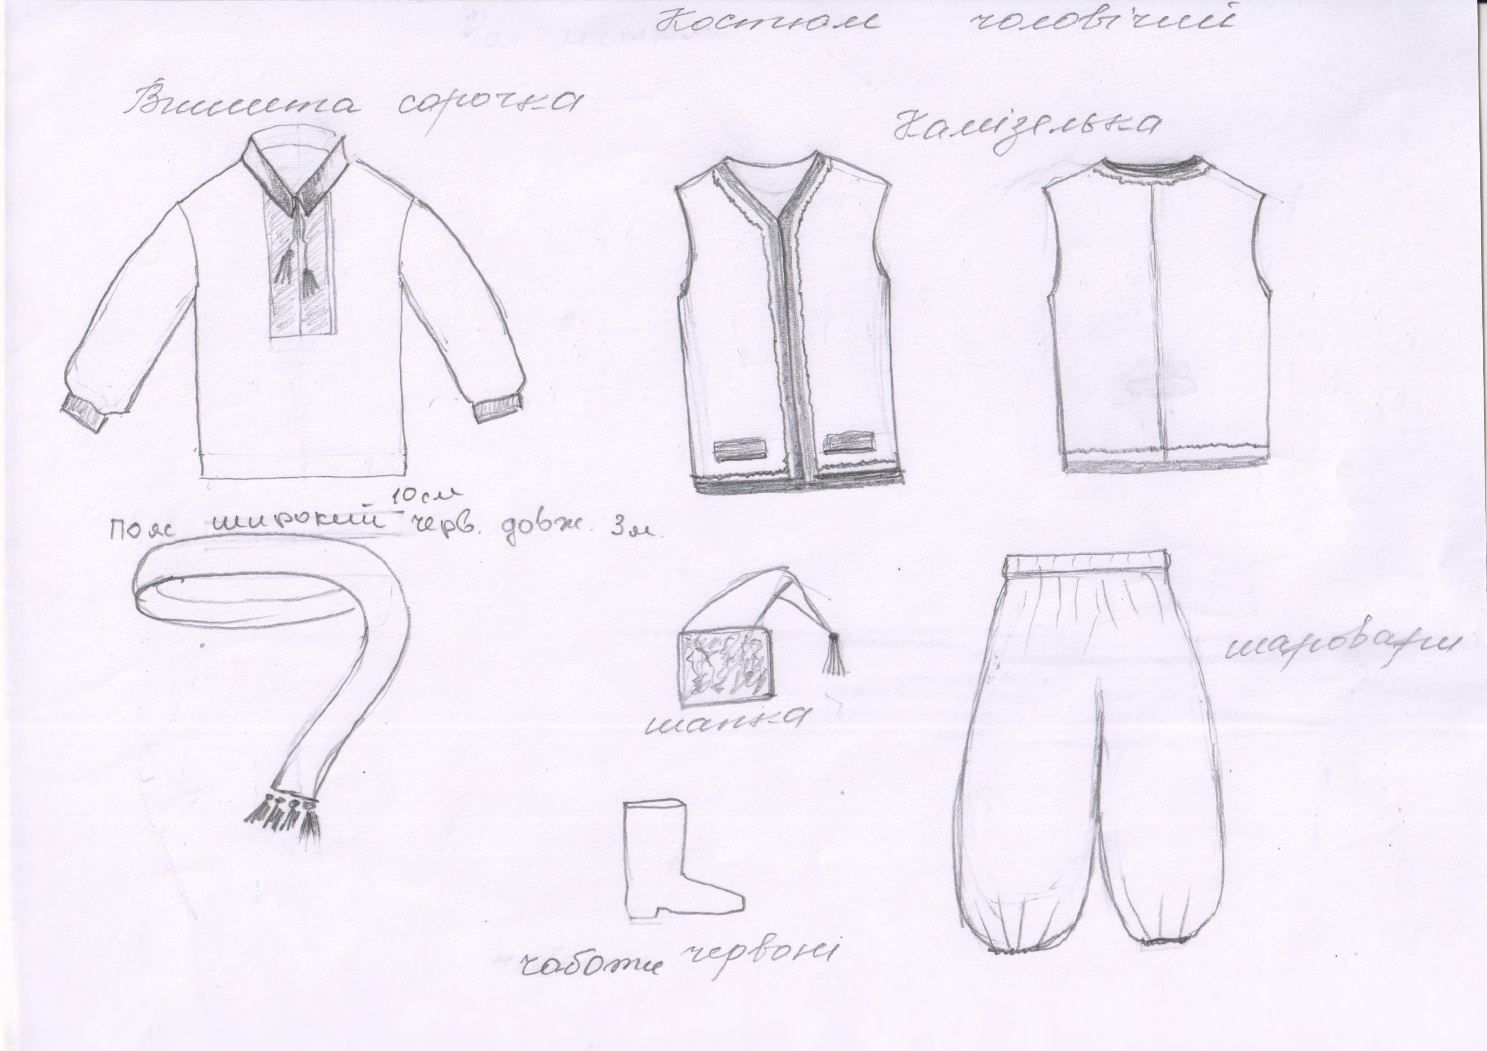 Костюм чоловічий
Вишита сорочка
Камізелька
10 см
Пояс широкий черв. довж. 3м.
шаровари
шапка
чоботи червоні